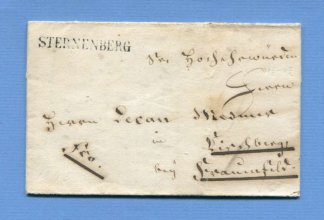 STERNENBERG
Sr Hochehrwürden
Herrn
Herrn Decan Mesmer
in
Kirchberg
bey Frauenfeld.